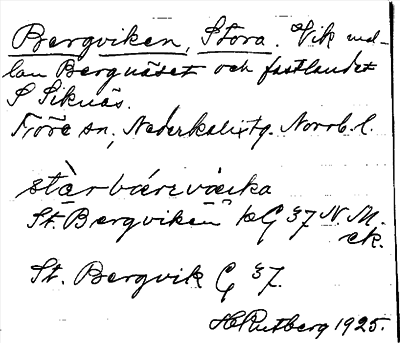 Bergviken, Stora. Vik mel-
lan Bergnäset och fastlandet
S Siknäs.
Töre sn, Nederkalixtg. Norrb. l.
St. Bergviken bG 37 N. M.
ek.
St. Bergvik G 37.
H Rutberg 1925.